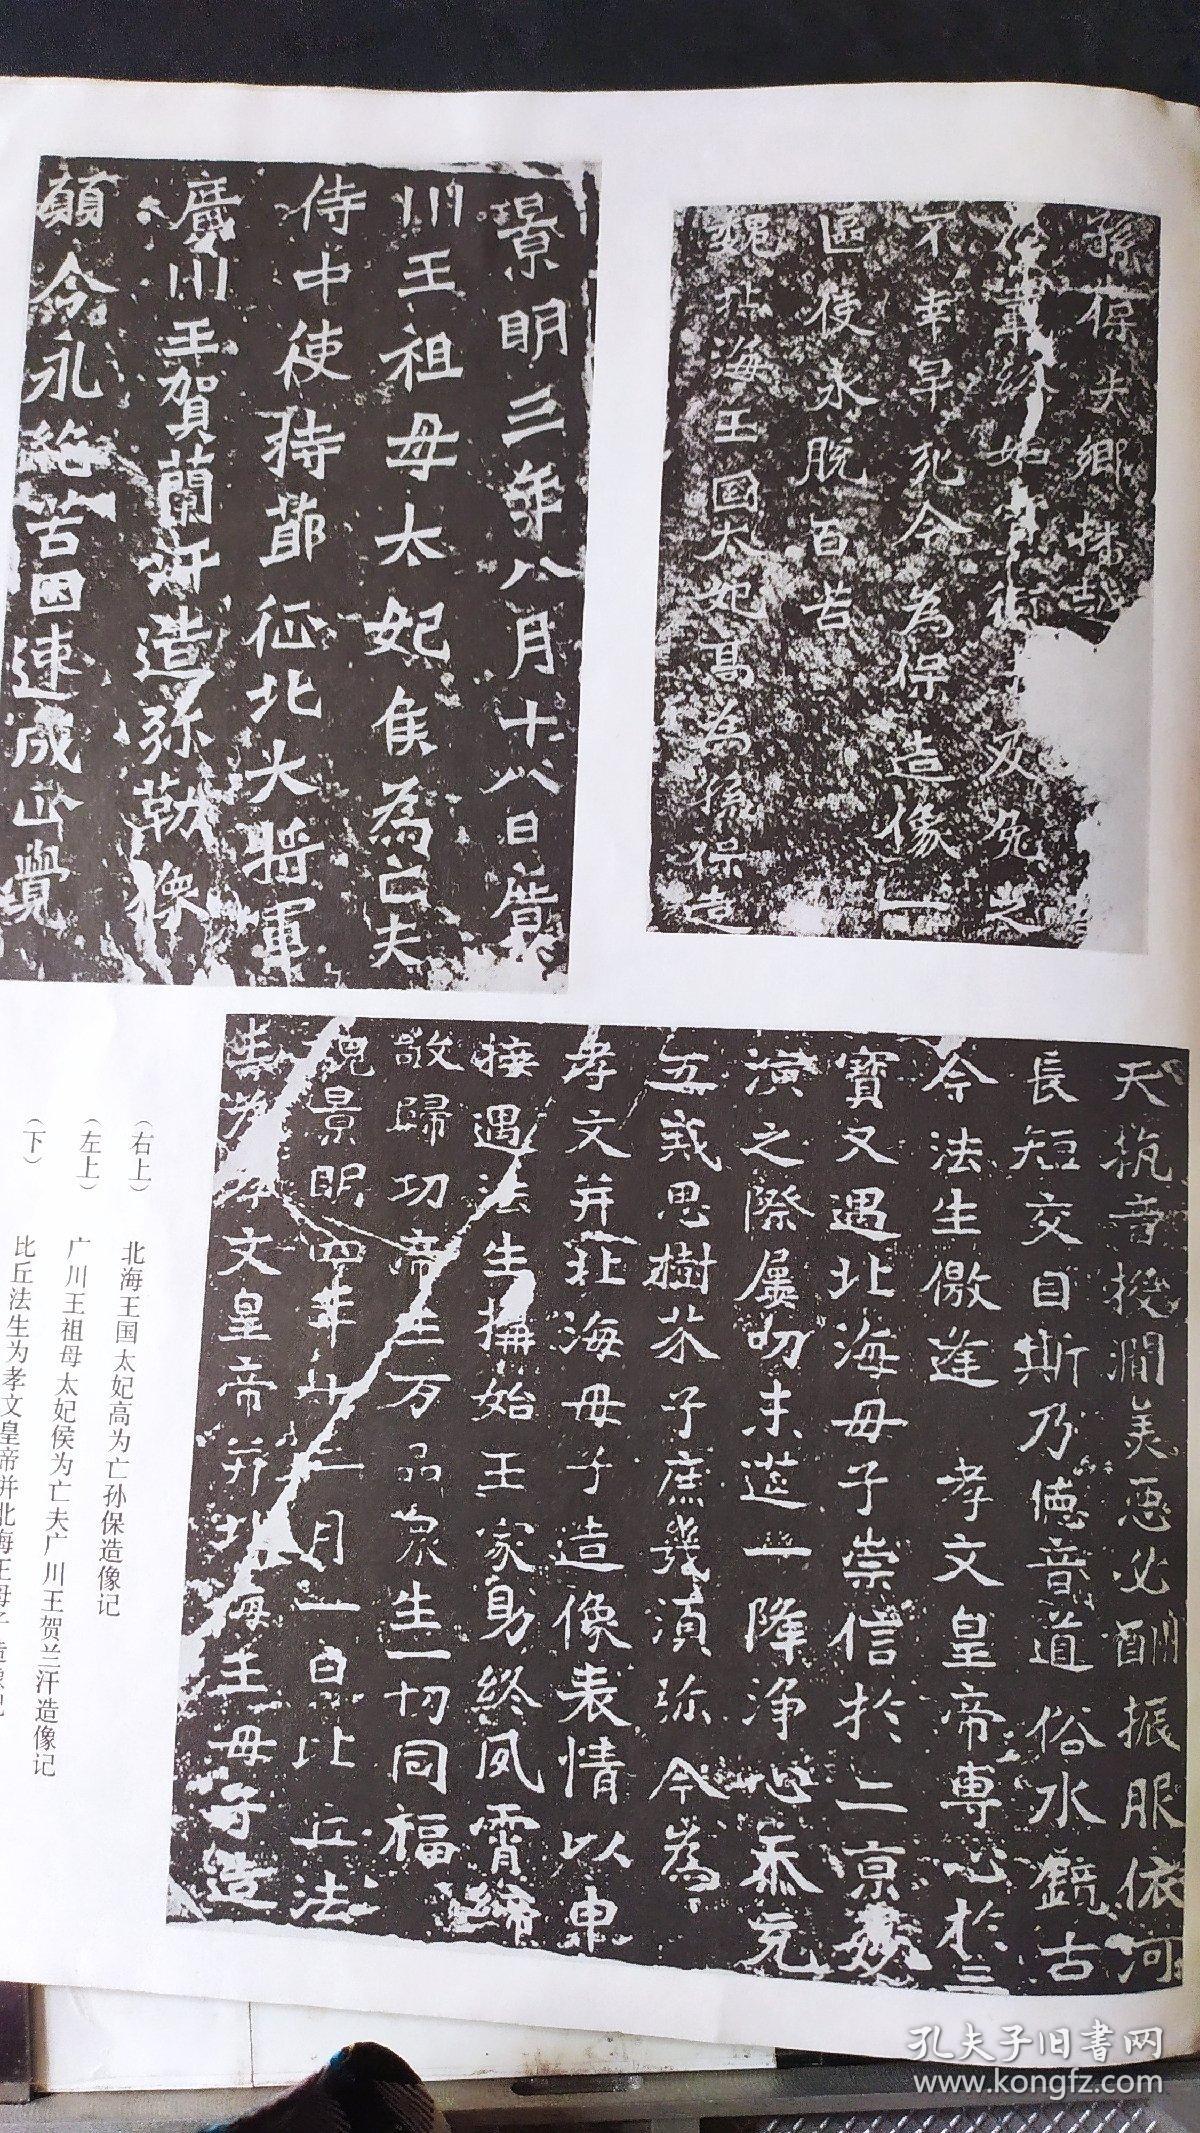 孫保失鄉
不幸早死今為保造像一
區使永脱百苦
魏北海王國太妃髙為孫保造
景明三年八月十八日廣
川王祖母太妃侯為亡夫
侍中使持節征北大將軍
廣川王賀蘭汗造弥勒像
願令永絶苦因速成正覺
夫抗音投澗美惡必酬振服依河
長短交目斯乃德音道俗水鏡古
今法生儌逢 孝文皇帝專心於三
寶又遇北海母子崇信於二京妙
演之際屢叨末莚一降淨心忝充
五戎思樹芥子庶幾須弥今為
孝文并北海母子造像表情以申
接遇法生搆始王家身終夙霄締
敬歸功帝王万品衆生一切同福
魏景明四年十二月一日比丘法
生為孝文皇帝并北海王母子造
（右上） 北海王国太妃高为亡孙保造像记
（左上） 广川王祖母太妃侯为亡夫广川王贺兰汗造像记
（下） 比丘法生为孝文皇帝并北海王母子造像记
孔夫子旧书网
www.kongfz.com